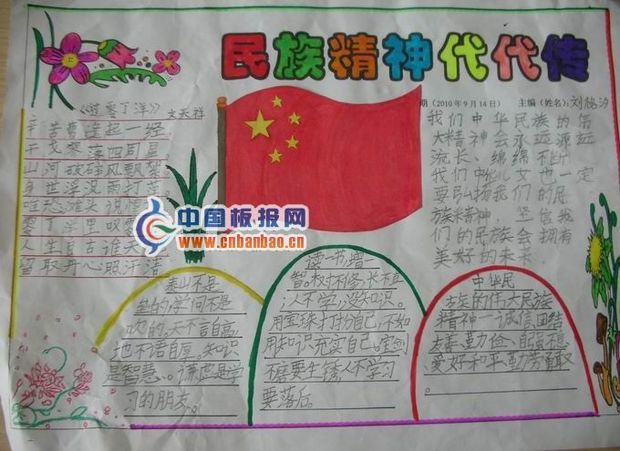 民族精神代代传
期（2010年9月14日） 主编（姓名：刘
《过零丁洋》 文天祥
辛苦遭逢起一经
干戈寥落四周星
山河破碎风飘絮
身世浮沉雨打萍
零丁洋里叹
人生自古谁无
留取丹心照汗青
我们中华民族的伟
大精神会永远源远
流长、绵绵不断
我们中华儿女也一定
要弘扬我们的民
族精神，坚信我
们的民族会拥有
美好的未来
中国板报网
www.cnbanbao.cn
泰山不是
垒的，学问不是
吹的。天不言自高，
地不语自厚。知识
是智慧、。谦虚是学
习的朋友。
读一书，增一
智。树不修，长不直
，人不学，没知识。
用宝珠打扮自己，不如
用知识充实自己。宝剑
不磨要生锈，人不学习
要落后。
中华民
族的伟大民族
精神—诚信团结
友善、勤俭、自强
爱好和平、勤劳勇敢
。